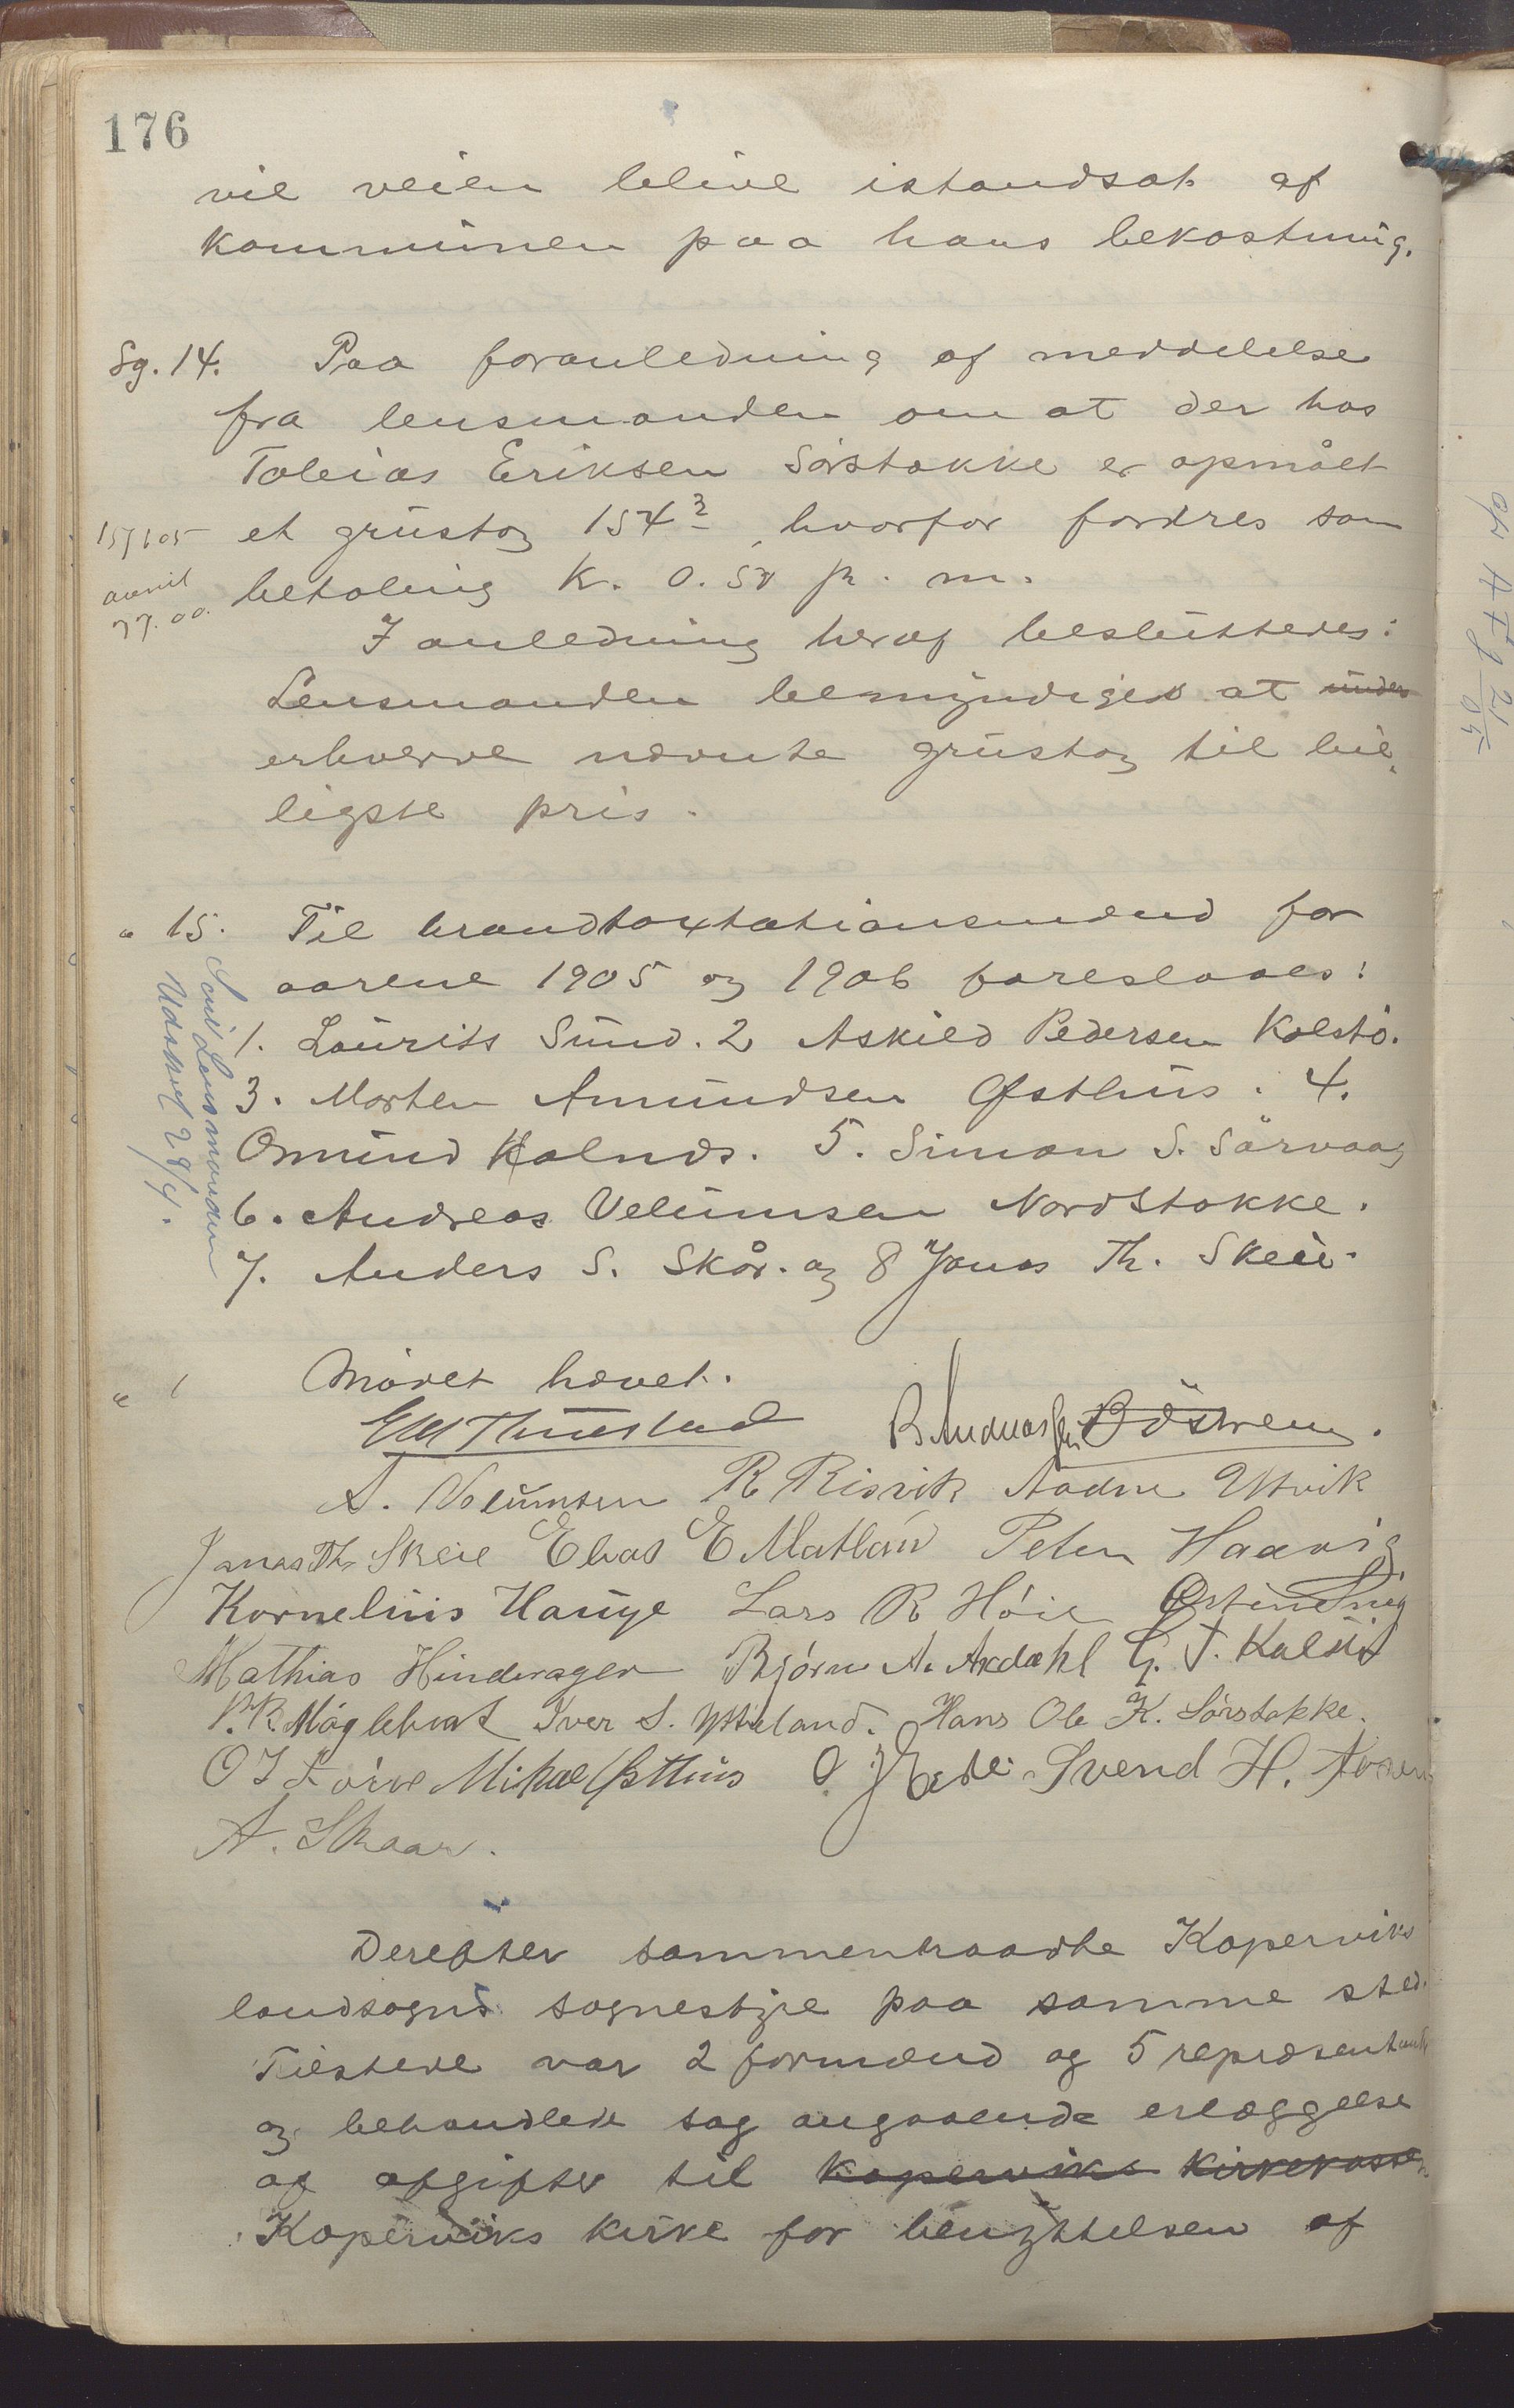 176
vil veien blive istandsat af
kommunen paa hans bekostning.
Sg. 14. Paa foranledning af meddelelse
fra lensmanden om at der hos
Tobias Eriksen Sørstokke er opmålt
et grustag 154 ², hvorfor fordres som
betaling k. 0.50 pr. m.
15/6 05
anvist
77.00.
I anledning heraf besluttedes:
Lensmanden bemyndiges at under
erhverve nævnte grustag til bil-
ligste pris.
" 15. Til brandtaxtationsmænd for
aarene 1905 og 1906 foreslaaes:
1. Laurits Sund. 2 Askild Pedersen Kolstø.
3. Morten Amundsen Østhus. 4.
Omund Kalnæs. 5. Simon S. Sørvaag
6. Andreas Velumsen Nordstokke.
7. Anders S. Skår. og 8 Jonas Th. Skeie.
Lensmanden
Udskrift 28/4.
" Mødet hævet.
B. Andreassen
A. Velumsen R Risvik Aadne Utvik
Jonas Th. Skeie Elias E Matland Peter Haavig
Kornelius Hauge Lars R Høie
Mathias Hinderager Bjørn A. Akdahl G. T.
Iver S. Hans Ole K. Sørstokke.
O I Mikael Østhus O Svend H.
A. Skaar.
Derefter sammentraadte Koperviks
landsogns sognestyre paa samme sted.
Tilstede var 2 formænd og 5 repræsentanter
og behandlede sag angaaende erlæggelse
af afgifter til Koperviks Kirkekasse
Koperviks kirke for benyttelsen af